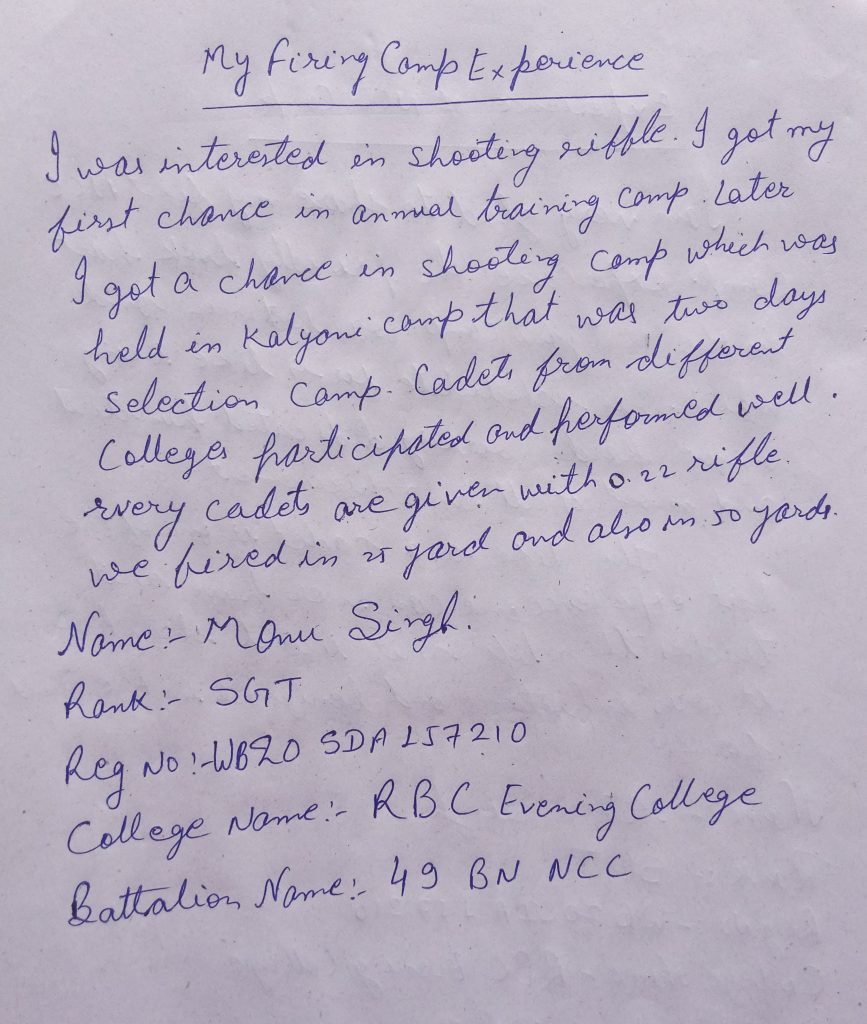 My firing Camp Experience
I was interested in shooting riffle. I got my
first chance in annual training camp. Later
I got a chance in shooting camp which was
held in Kalyani camp that was two days
selection camp. Cadets from different
Colleges participated and performed well.
Every cadets are given with 0.22 rifle.
we fired in 25 yard and also in 50 yards.
Name:- Monu Singh.
Rank:- SGT
Reg No:- WB20 SDA 157210
College Name:- RBC Evening College
Battalion Name:- 49 BN NCC